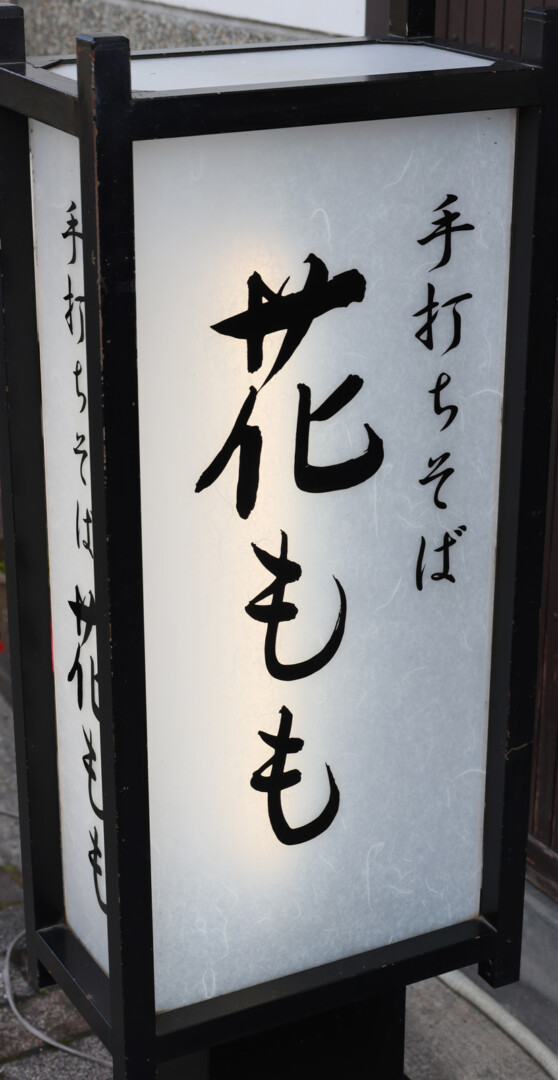 手打ちそば
花もも
手打ちそば
花もも